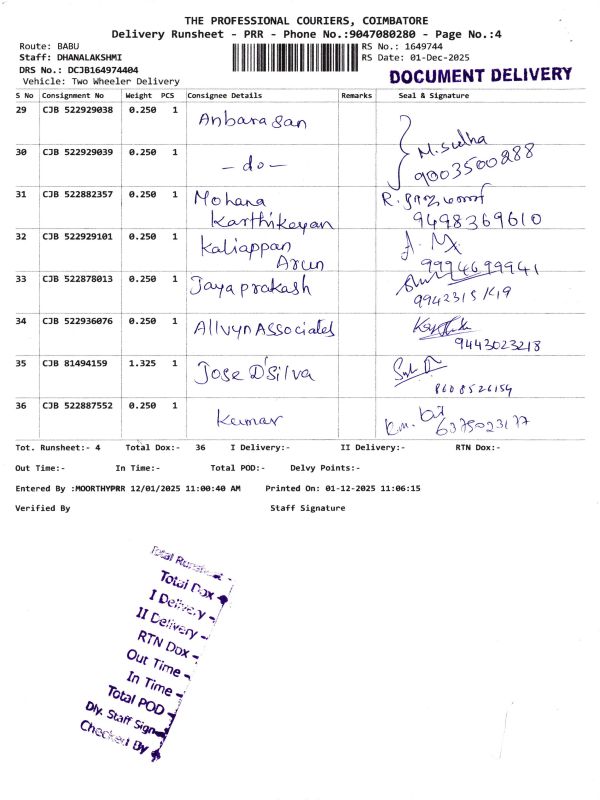 THE PROFESSIONAL COURIERS, COIMBATORE
Delivery Runsheet - PRR - Phone No.:9047080280 - Page No.:4
Route: BABU RS No.: 1649744
Staff: DHANALAKSHMI RS Date: 01-Dec-2025
DRS No.: DCJB164974404
Vehicle: Two Wheeler Delivery
DOCUMENT DELIVERY
S No Consignment No Weight PCS Consignee Details Remarks Seal & Signature
29 CJB 522929038 0.250 1 Anbarasan
30 CJB 522929039 0.250 1 - do - M. Sudha 9003500288
31 CJB 522882357 0.250 1 Mohana Karthikeyan 9498369610
32 CJB 522929101 0.250 1 Kaliappan Arun 9994699941
33 CJB 522878013 0.250 1 Jayaprakash
34 CJB 522936076 0.250 1 Allvyn Associates 9443023218
35 CJB 81494159 1.325 1 Jose D'Silva
36 CJB 522887552 0.250 1 Kumar
Tot. Runsheet:- 4 Total Dox:- 36 I Delivery:- II Delivery:- RTN Dox:-
Out Time:- In Time:- Total POD:- Delvy Points:-
Entered By :MOORTHYPRR 12/01/2025 11:00:40 AM Printed On: 01-12-2025 11:06:15
Verified By Staff Signature
Total Runsheet -
Total Dox -
I Delivery -
II Delivery -
RTN Dox -
Out Time -
In Time -
Total POD -
Dly. Staff Sign -
Checked By -